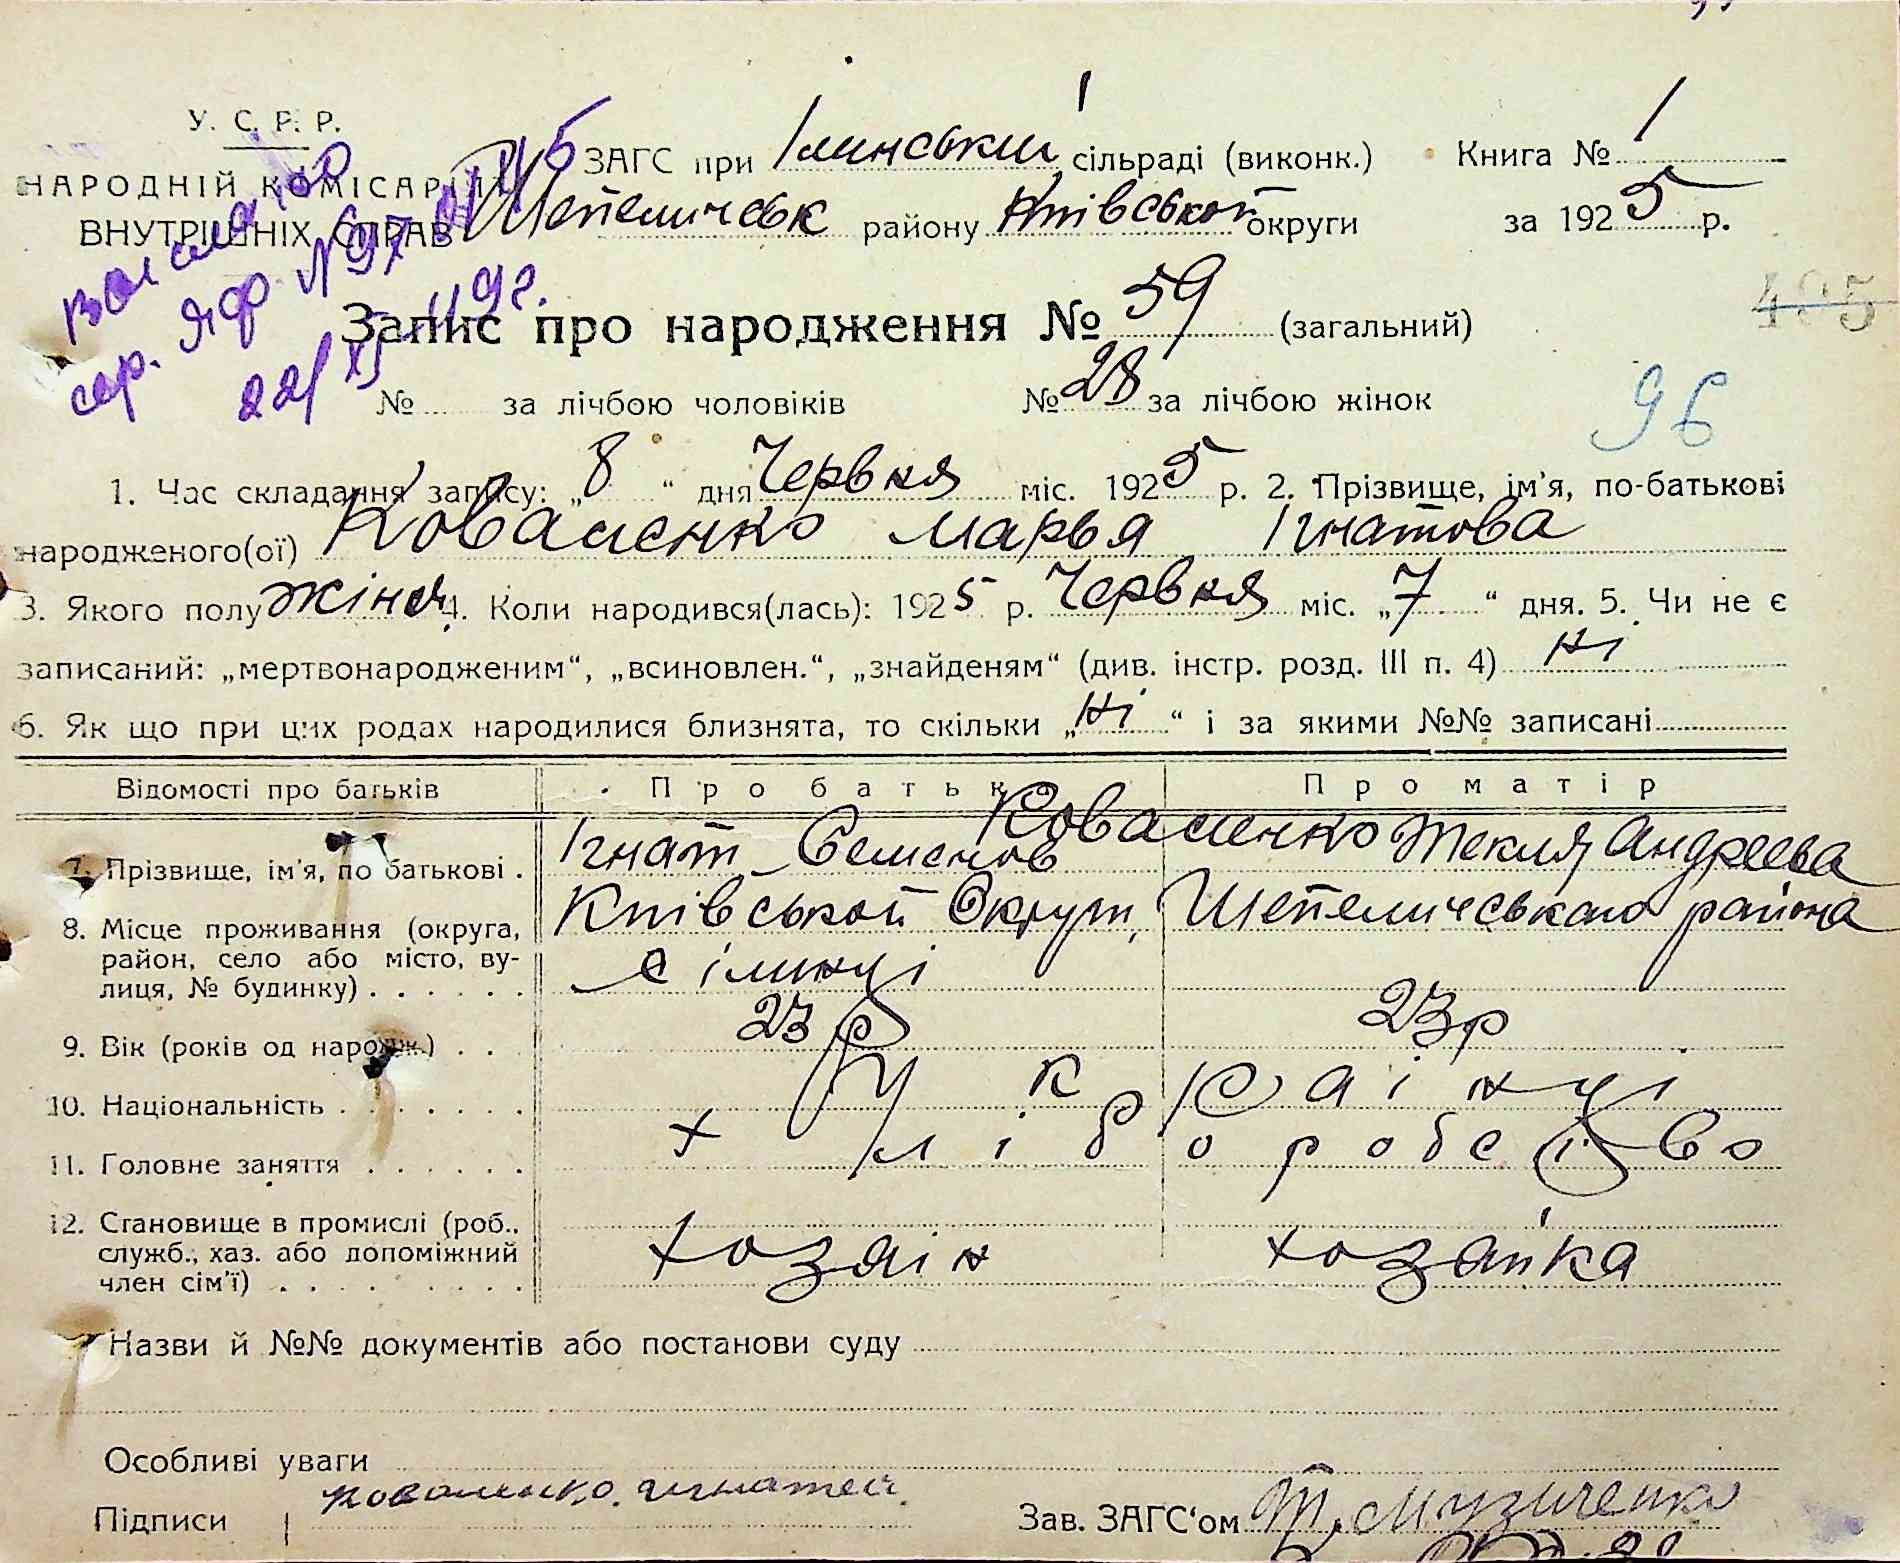 У. С. Р. Р.
НАРОДНІЙ КОМІСАРІЯТ
ВНУТРІШНІХ СПРАВ
ЗАГС при Ілинський сільраді (виконк.) Книга № 1
Шепеличськ району Київської округи за 1925 р.
сер. ЯФ № 97
22/XI 49г.
Запис про народження № 59 (загальний)
495
№ за лічбою чоловіків № 28 за лічбою жінок
96
1. Час складання запису: „8“ дня Червня міс. 1925 р. 2. Прізвище, ім'я, по-батькові
народженого(ої) Коваленко Марья Ігнатова
3. Якого полу жіноч 4. Коли народився(лась): 1925 р. Червня міс. „7“ дня. 5. Чи не є
записаний: „мертвонародженим“, „всиновлен.“, „знайденям“ (див. інстр. розд. III п. 4) Ні
6. Як що при цих родах народилися близнята, то скільки „Ні“ і за якими №№ записані
Відомості про батьків Про батька Про матір
7. Прізвище, ім'я, по батькові . Коваленко Ігнат Семенов Текля Андреева
8. Місце проживання (округа, район, село або місто, вулиця, № будинку) Київськой Округи, Шепеличськаго района
с Ілинці
9. Вік (років од народж.) 23 р 23 р
10. Національність Украінці
11. Головне заняття хліборобство
12. Становище в промислі (роб., служб., хаз. або допоміжний член сім'ї) хозаін хозайка
Назви й №№ документів або постанови суду
Особливі уваги
Підписи Коваленко. Игнатей. Зав. ЗАГС'ом Т. Музиченко